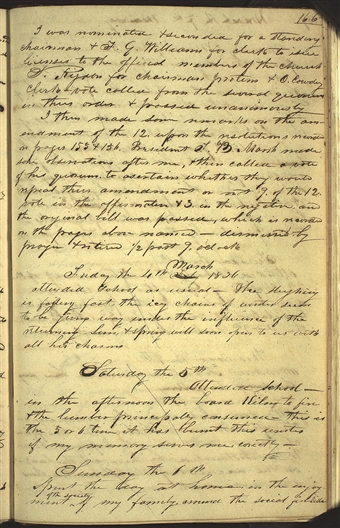 166
I was nominated & seconded for a standing
chairman & F. G. Williams for clerk to issue
licenses to the official members of the church
S. Rigdon for chairman protem & O. Cowdry
Clerk - vote called from the several quorums
in their order & passed unanimously—
I then made some remarks on the am-
endment of the 12. upon the resolutions recorded
on pages 155 & 156. President T. B. Marsh made
some observations after me, & then called a vote
of his quorum to ascertain whether they would
repeal their amendment or not 9. of the 12
vote in the affirmative & 3. in the negative, and
the original bill was passed, which is recorded
on the pages above named — dismissed by
prayer & retired ½ past 9. oclock
March
Friday the 4th 1836
attended school as usual - The
is failing fast the icy chains of winter seem
to be giving way under the influence of the
returning Sun, & spring will soon open to us with
all her charms
Saturday the 5th
Attended School —
in the afternoon the board kiln took fire
& the lumber principally consumed - this is
the 5 or 6 time it has burnt this winter
if my memory serves me corectly —
Sunday the 6th
Spent the day at home in the enjoy-
of the society
ment of my family, around the social fireside